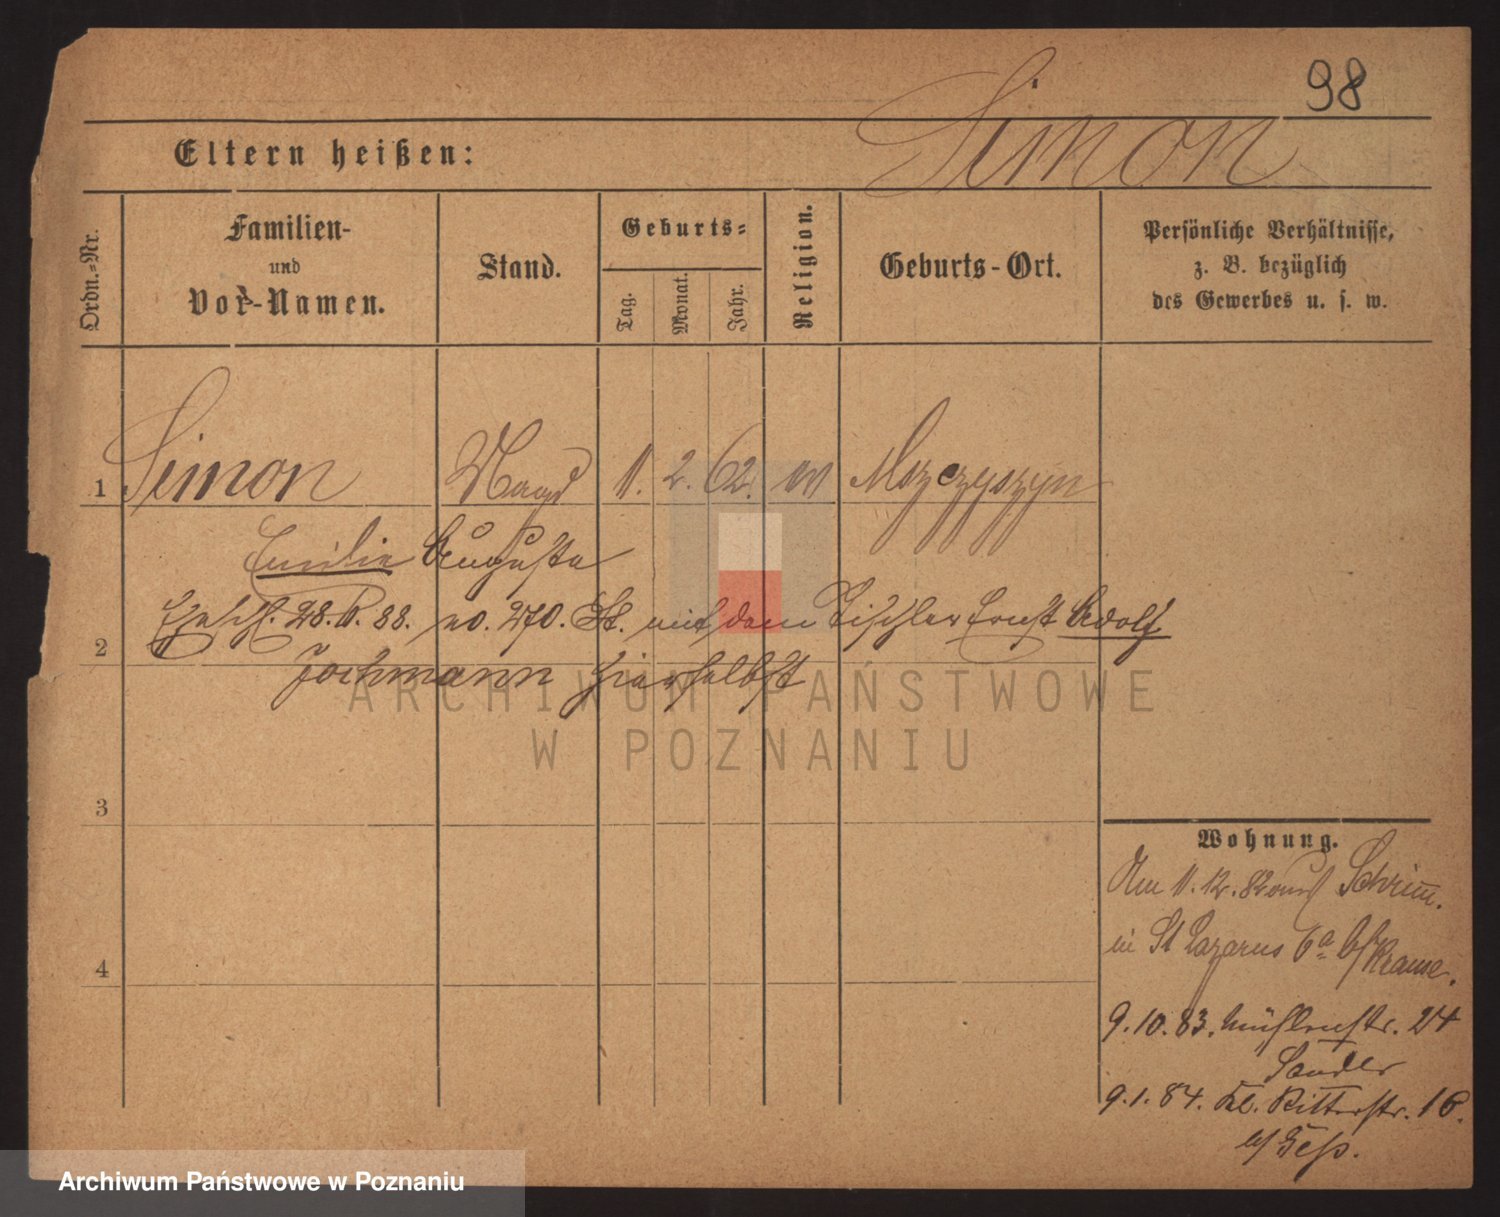 98
Simon
Eltern heißen:
Ordn.-Nr.
Familien-
und
Vor-Namen.
Stand.
Geburts-
Tag.
Monat.
Jahr.
Religion.
Geburts-Ort.
Persönliche Verhältnisse,
z. B. bezüglich
des Gewerbes u. s. w.
1 Simon Magd 11. 2. 62. ev
Emilie Auguste
28. 6. 88. no. 270. St. mit dem Tischler Ernst Adolf
2
Jochmann hierselbst
3
4
Wohnung.
Am 11. 12. 82 aus Schrimm.
in St Lazarus 6a b/ Krause.
9. 10. 83. Mühlenstr. 24
Sander
9. 1. 84. Kl. Ritterstr. 16.
b/
ARCHIWUM PAŃSTWOWE
W POZNANIU
Archiwum Państwowe w Poznaniu